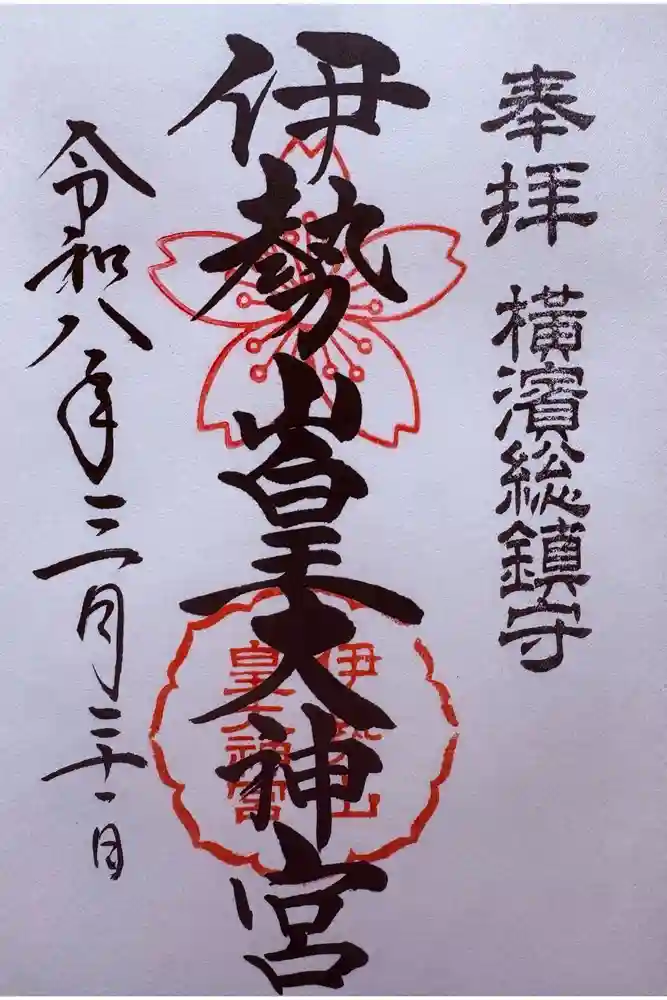 奉拝
横濱総鎮守
伊勢山皇大神宮
伊勢山
皇大神宮
令和八年三月三十一日